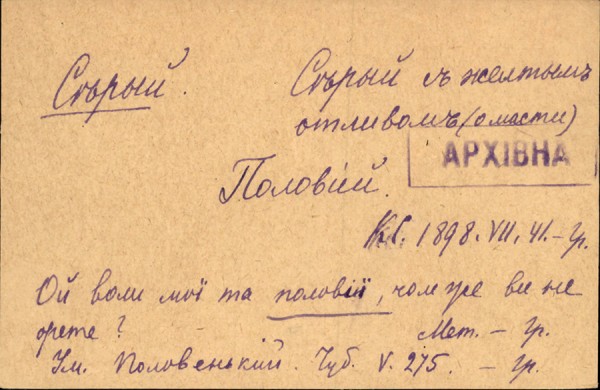 Сѣрый. Сѣрый съ желтымъ
отливомъ (о масти)
АРХІВНА
Полові́й.
К.С. 1898. VII, 41. – Гр.
Ой воли мої та половії, чом же ви не
орете? Мет. – Гр.
Ум. Половенький. Чуб. V. 275. – Гр.